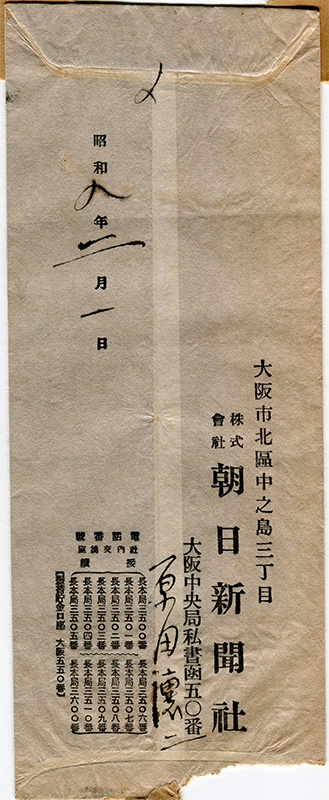 〆
大阪市北區中之島三丁目
株式會社 朝日新聞社
大阪中央局私書函五〇番
原田讓二
電話番號
社内交換座接續
長本局三五〇〇番
長本局三五〇一番
長本局三五〇二番
長本局三五〇三番
長本局三五〇四番
長本局三五〇五番
長本局三五〇六番
長本局三五〇七番
長本局三五〇八番
長本局三五〇九番
長本局三五一〇番
長本局三六〇〇番
【振替貯金口座 大阪五五〇番】
昭和九年二月一日